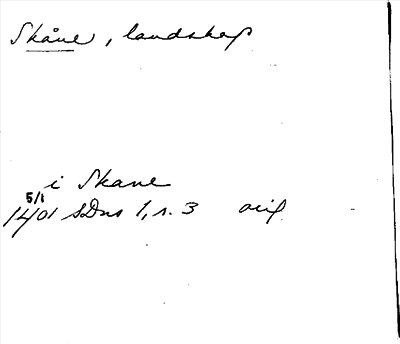 Skåne, landskap
i Skane
5/1
1401 SDns 1, s. 3 orig.